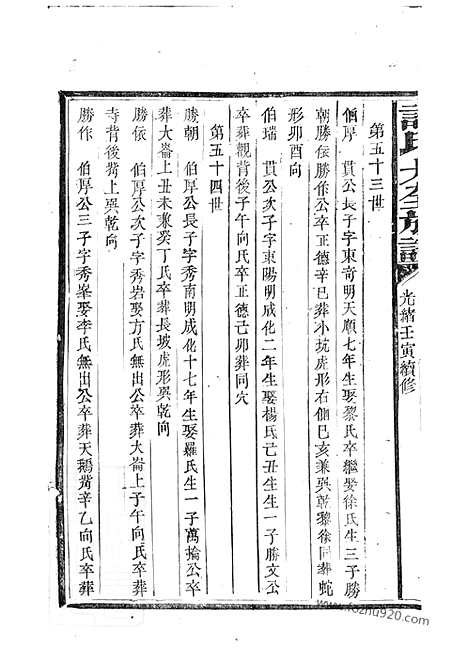 氏大全族譜
光緒壬寅續修
第五十三世
伯厚　貫公長子字東竒明天順七年生娶黎氏卒繼娶徐氏生三子勝
朝勝依勝作公卒正德辛巳葬小坑虎形右側巳亥兼巽乾黎徐同葬蛇
形卯酉向
伯瑞　貫公次子字東陽明成化二年生娶楊氏己丑生生一子勝文公
卒葬觀背後子午向氏卒正德己卯葬同穴
第五十四世
勝朝　伯厚公長子字秀南明成化十七年生娶羅氏生一子萬掄公卒
葬大崙上丑未兼癸丁氏卒葬長坡虎形巽乾向
勝依　伯厚公次子字秀岩娶方氏無出公卒葬大崙上子午向氏卒葬
寺背後嘴上巽乾向
勝作　伯厚公三子字秀峯娶李氏無出公卒葬天鵝嘴辛乙向氏卒葬
www.fozhu920.com